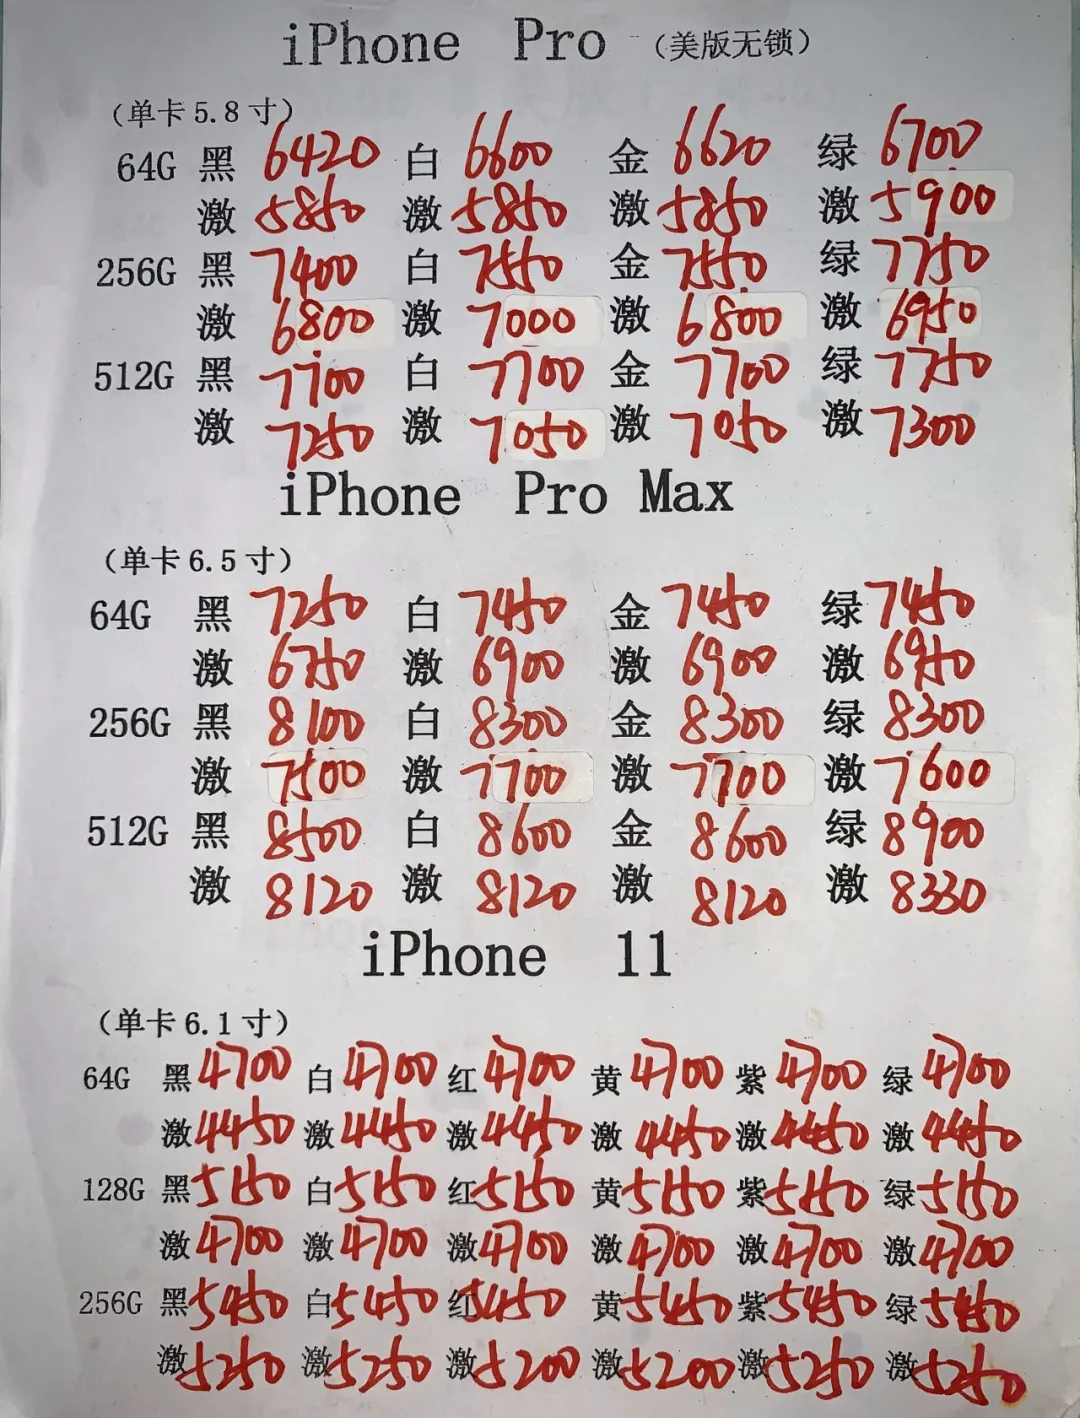 iPhone Pro （美版无锁）
（单卡5.8寸）
64G 黑 6420 白 6600 金 6620 绿 6700
激 5850 激 5850 激 5850 激 5900
256G 黑 7400 白 7550 金 7550 绿 7750
激 6800 激 7000 激 6800 激 6950
512G 黑 7700 白 7700 金 7700 绿 7750
激 7250 激 7050 激 7050 激 7300
iPhone Pro Max
（单卡6.5寸）
64G 黑 7250 白 7450 金 7450 绿 7450
激 6750 激 6900 激 6900 激 6950
256G 黑 8100 白 8300 金 8300 绿 8300
激 7500 激 7700 激 7700 激 7600
512G 黑 8500 白 8600 金 8600 绿 8900
激 8120 激 8120 激 8120 激 8330
iPhone 11
（单卡6.1寸）
64G 黑 4700 白 4700 红 4700 黄 4700 紫 4700 绿 4700
激 4450 激 4450 激 4450 激 4450 激 4450 激 4450
128G 黑 5150 白 5150 红 5150 黄 5150 紫 5150 绿 5150
激 4700 激 4700 激 4700 激 4700 激 4700 激 4700
256G 黑 5450 白 5450 红 5450 黄 5450 紫 5450 绿 5450
激 5250 激 5250 激 5200 激 5200 激 5250 激 5250